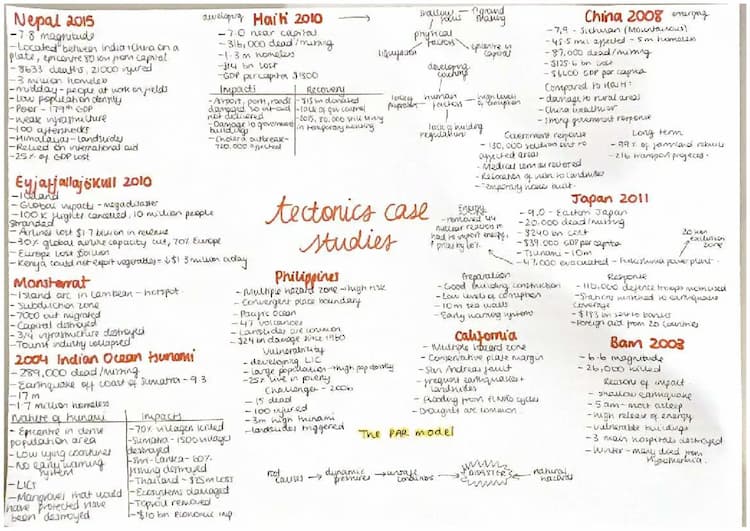 Nepal 2015
- 7.8 magnitude
- Located between india + China on a
plate, epicentre 80km from capital
- 8633 deaths, 21000 injured
- 3 million homeless
- midday - people at work on fields
- Low population density
- Poor - 179th GDP
- weak infrastructure
- 100 aftershocks
- Himalayas - landslides
- Relied on international aid
- 25% of GDP lost
developing
Haiti 2010
- 7.0 near capital
- 316,000 dead/missing
- 1.3 m homeless
- $14 bn lost
- GDP per capita $1500
Impacts
- Airport, port, roads
damaged so aid
not delivered
- Damage to government
buildings
- Cholera outbreak -
720,000 affected
Recovery
- $13bn donated
- lack of gov control
still
in temporary housing
shallow
focus
ground
shaking
physical
factors
liquefaction
epicentre at
capital
developing
country
human
factors
high levels of
corruption
lack of building
regulations
China 2008
emerging
- 7.9 - Sichuan (Mountainous)
- 45.5 mil affected - 5m homeless
- 87,000 dead/missing
- $125.6 bn lost
- $6,600 GDP per capita
Compared to HAITI:
- damage to rural areas
- China wealthier
- strong government response
Government response
- 130,000 soldiers sent to
affected area
- Medical
- Relocation of
- Temporary homes built
Long term
- 99% of farmland rebuilt
- 216 transport projects
Eyjafjallajökull 2010
- Iceland
- Global impacts - megadisaster
- 100 K flights cancelled, 10 million people
stranded
- Airlines lost $1.7 billion in revenue
- 30% global airline capacity cut, 70% Europe
- Europe lost $
- Kenya could not export vegetables - ↓$1.3 million a day
tectonics case
studies
Energy
- removed
nuclear reactors so
had to import energy,
prices by
Japan 2011
- 9.0 - Eastern Japan
- 20,000 dead/missing
- $240 bn cost
- $39,000 GDP per capita
- Tsunami - 10m
- 47,000 evacuated - Fukushima power plant
20 km
exclusion
zone
Preparation
- Good building construction
- Low levels of corruption
- 10m sea walls
- Early warning system
Response
- 110,000 defence troops mobilised
- Stations switched to earthquake
coverage
- $183 bn to banks
- Foreign aid from 20 countries
Montserrat
- Island arc in Caribbean - hotspot
- Subduction zone
- 7000 out migrated
- Capital destroyed
- 3/4 infrastructure destroyed
- Tourist industry collapsed
2004 Indian Ocean tsunami
- 289,000 dead/missing
- Earthquake off coast of Sumatra - 9.3
- 17 m
- 1.7 million homeless
Nature of tsunami
- Epicentre in dense
population area
- Low lying coastlines
- No early warning
system
- LICs
- Mangroves that would
have protected have
been destroyed
Impacts
- 70% villagers killed
- Sumatra - 1500 villages
destroyed
- Sri-Lanka - 60%
fishing destroyed
- Thailand - $25m lost
- Ecosystems damaged
- Topsoil removed
- $10 bn economic imp
Philippines
- Multiple hazard zone - high risk
- Convergent plate boundary
- Pacific Ocean
- 47 volcanoes
- Landslides are common
- $24 bn damage since 1960
Vulnerability
- developing LIC
- large population - high pop density
- 25% live in poverty
Challenger - 2006
- 15 dead
- 100 injured
- 3m high tsunami
- landslides triggered
California
- Multiple hazard zone
- Conservative plate margin
- San Andreas fault
- frequent earthquakes +
landslides
- flooding from El Niño cycles
- Droughts are common
Bam 2003
- 6.6 magnitude
- 26,000 killed
Reason of impact
- shallow earthquake
- 5am - most asleep
- high release of energy
- vulnerable buildings
- 3 main hospitals destroyed
- Winter - many died from
hypothermia
The PAR model
root
causes
dynamic
pressures
unsafe
conditions
DISASTER
natural
hazards